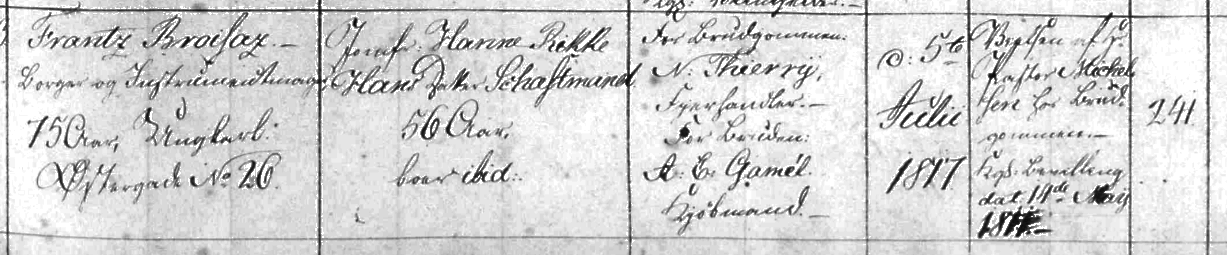 Frantz Broisaz.-
Borger og Instrumentmager
75 Aar, Ungkarl:
Østergade No 26.
Jomfr: Hanne Rikke
Hans Datter Schaftmand
56 Aar,
boer ibid:.
For Brudgommen:
N: Thierry,
For Bruden:
A: E: Gamél.
Kjöbmand.-
d: 5te
Julii
1817
Vielsen af Hr.
Pastor Michel-
sen hos Brud-
gommen.-
Kgl: Bevilling
dat 14de May
1817.-
241